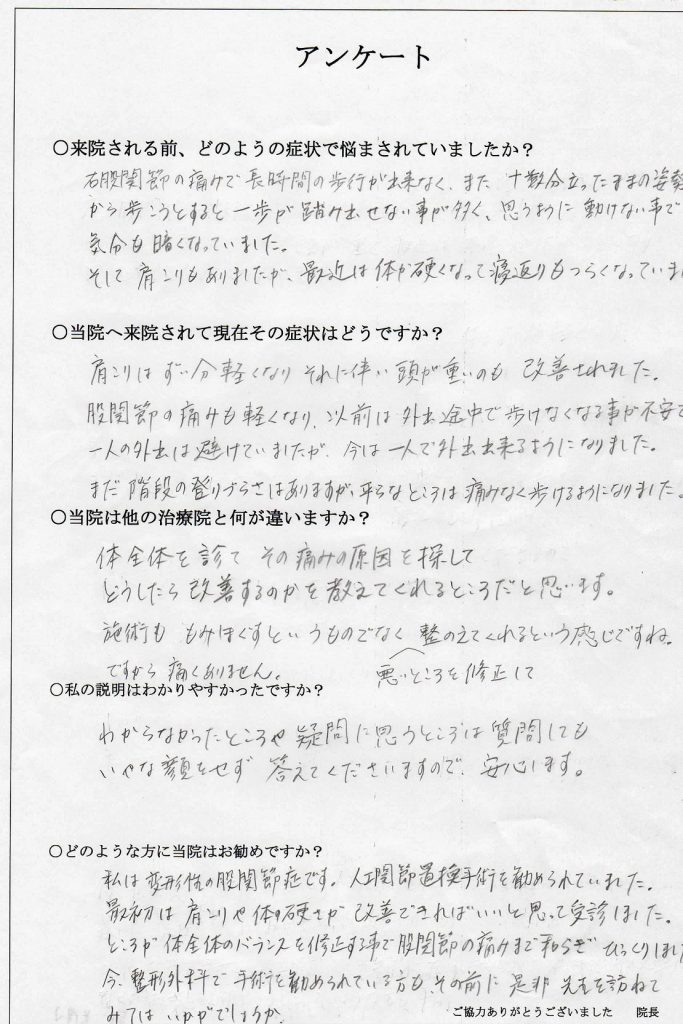 アンケート
〇来院される前、どのようの症状で悩まされていましたか？
右股関節の痛みで長時間の歩行が出来なく、また 十数分立ったままの姿勢
から歩こうとすると一歩が踏み出せない事が多く、思うように動けない事で
気分も暗くなっていました。
そして肩こりもありましたが、最近は体が硬くなって寝返りもつらくなっていま
〇当院へ来院されて現在その症状はどうですか？
肩こりはずい分軽くなり それに伴い頭が重いのも 改善されました。
股関節の痛みも軽くなり、以前は外出途中で歩けなくなる事が不安で
一人の外出は避けていましたが、今は一人で外出出来るようになりました。
まだ階段の登りづらさはありますが、平らなところは痛みなく歩けるようになりました。
〇当院は他の治療院と何が違いますか？
体全体を診て その痛みの原因を探して
どうしたら改善するのかを教えてくれるところだと思います。
施術も もみほぐすというものでなく 整のえてくれるという感じですね。
ですから痛くありません。 悪いところを修正して
〇私の説明はわかりやすかったですか？
わからなかったところや疑問に思うところは質問しても
いやな顔をせず 答えてくださいますので、安心します。
〇どのような方に当院はお勧めですか？
私は変形性の股関節症です。人工関節置換手術を勧められていました。
最初は肩こりや体の硬さが 改善できればいいと思って受診しました。
ところが体全体のバランスを修正する事で股関節の痛みまで和らぎ びっくりしま
今、整形外科で手術を勧められている方も、その前に是非 先生を訪ねて
みてはいかがでしょうか。
ご協力ありがとうございました 院長